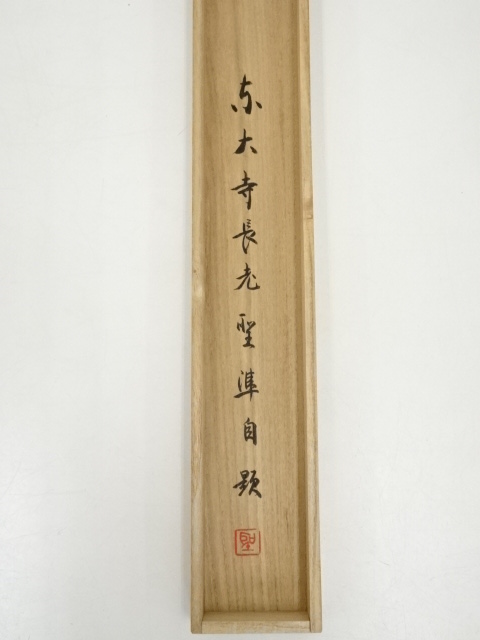 東大寺長老聖準自題
聖